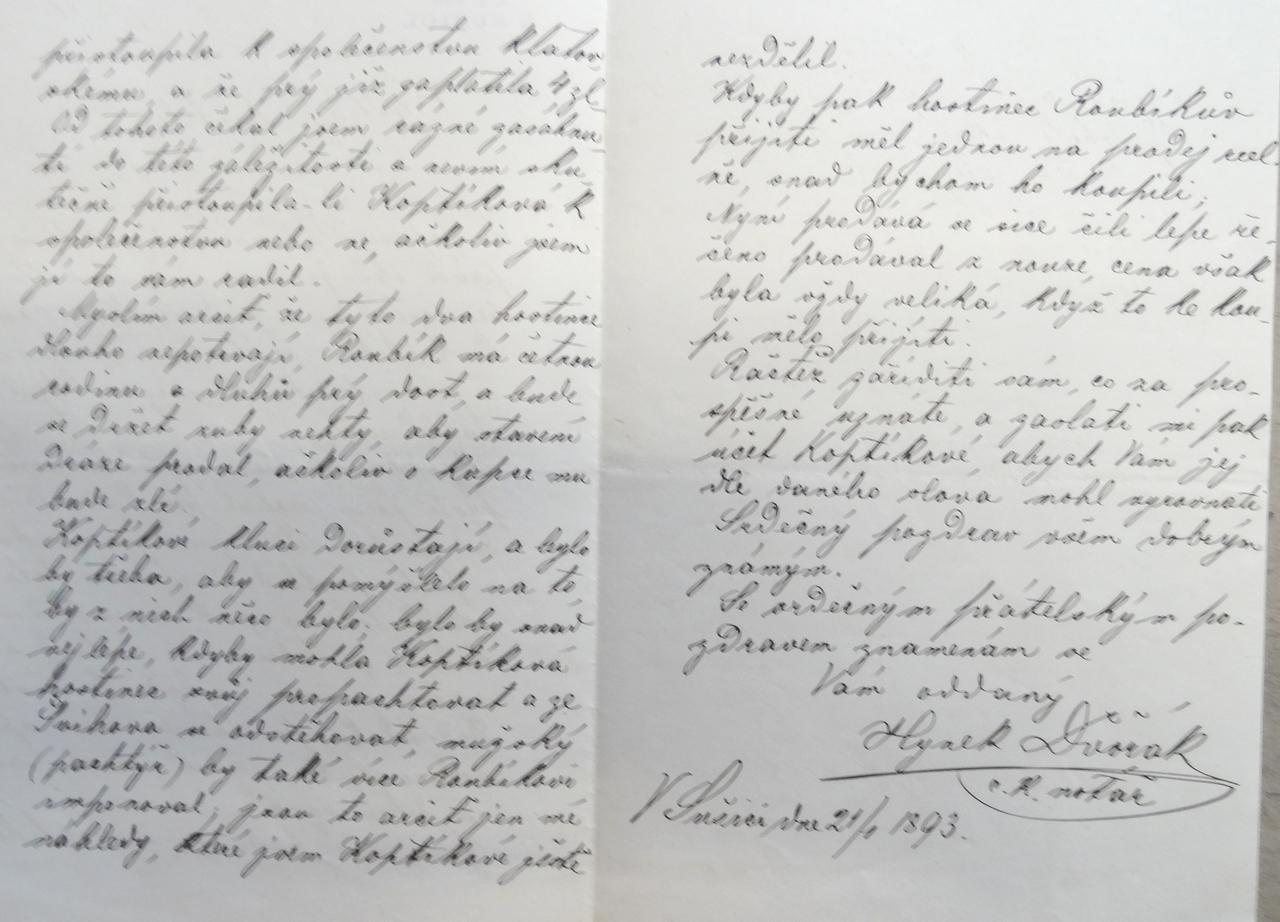 přistoupila k společenstvu klatov
skému, a že prý již zaplatila 4 zl
Od tohoto čekal jsem rázné zasáhnu
tí do této záležitosti a nevím sku
tečně přistoupila-li Koptíková k
společenstvu nebo ne, ačkoliv jsem
jí to sám radil.
Myslím arciť, že tyto dva hostince
dlouho nepotrvají, Roubík má četnou
rodinu a dluhů prý dost, a bude
se držet zuby nehty, aby stavení
draze prodal, ačkoliv o kupce mu
bude zle.
Koptíkové kluci dorůstají, a bylo
by třeba, aby se pomýšlelo na to,
by z nich něco bylo. bylo by snad
nejlépe, kdyby mohla Koptíková
hostinec svůj propachtovat a ze
Švihova se odstěhovat, mužský
(pachtýř) by také více Roubíkovi
imponoval; jsou to arciť jen mé
náhledy, které jsem Koptíkové ještě
nesdělil.
Kdyby pak hostinec Roubíkův
přijíti měl jednou na prodej reel
ně, snad bychom ho koupili;
Nyní prodává se sice čili lépe ře-
čeno prodával z nouze, cena však
byla vždy veliká, když to ke kou-
pi mělo přijíti.
Račtež zaříditi sám, co za pro-
spěšné uznáte, a zaslati mi pak
účet Koptíkové, abych Vám jej
dle daného slova mohl vyrovnati
Srdečný pozdrav všem dobrým
známým.
Se srdečným přátelským po-
zdravem znamenám se
Vám oddaný
Hynek Dvořák
c. k. notář
V Sušici dne 21/1 1893.